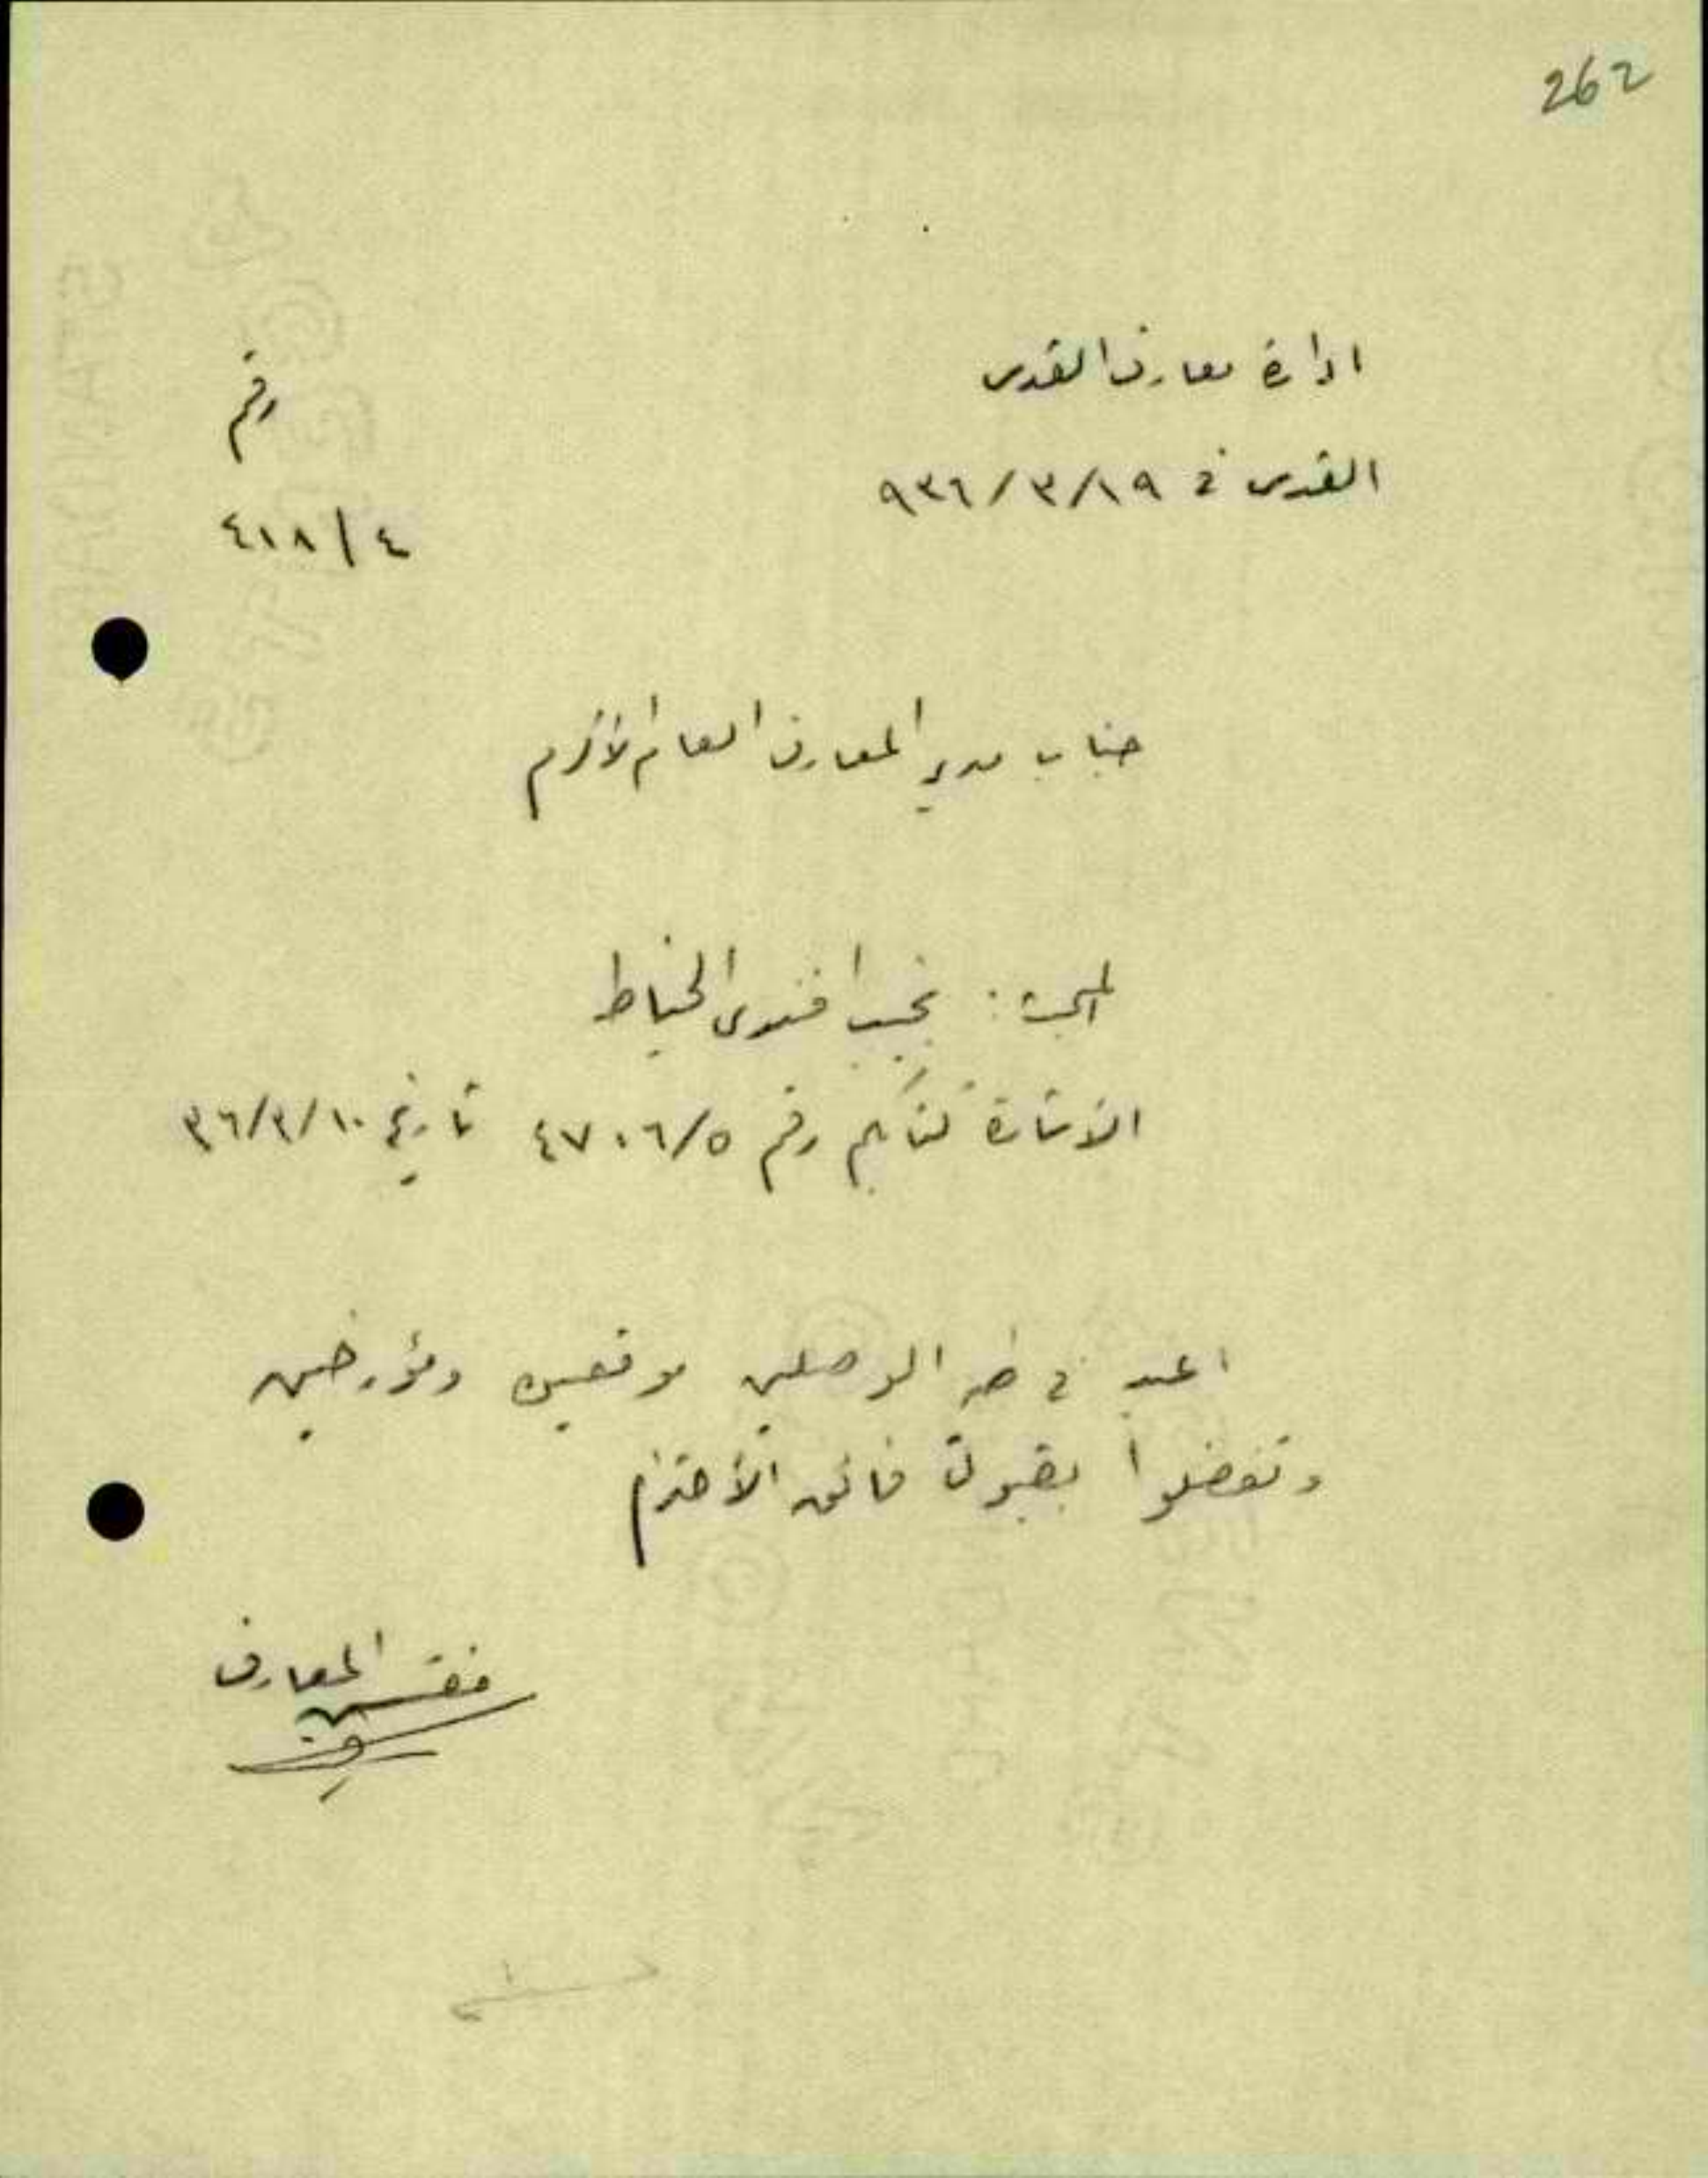 262
ادارة معارف القدس
رقم
القدس في ١٩/٣/٩٣٦
٤١٨/٤
جناب مدير المعارف العام الأكرم
المبحث: نجيب افندي الخياط
الاشارة كتابكم رقم ٤٧٠٦/٥ تاريخ ٣٦/٣/١٠
اعيد في طيه الوصلين موقعين ومؤرخين
وتفضلوا بقبول فائق الاحترام
مفتش المعارف